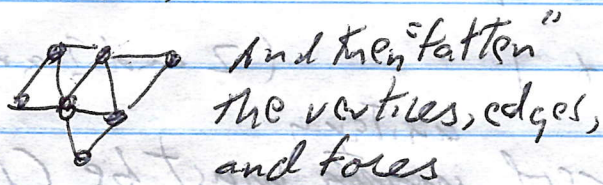 And then "fatten"
the vertices, edges,
and faces